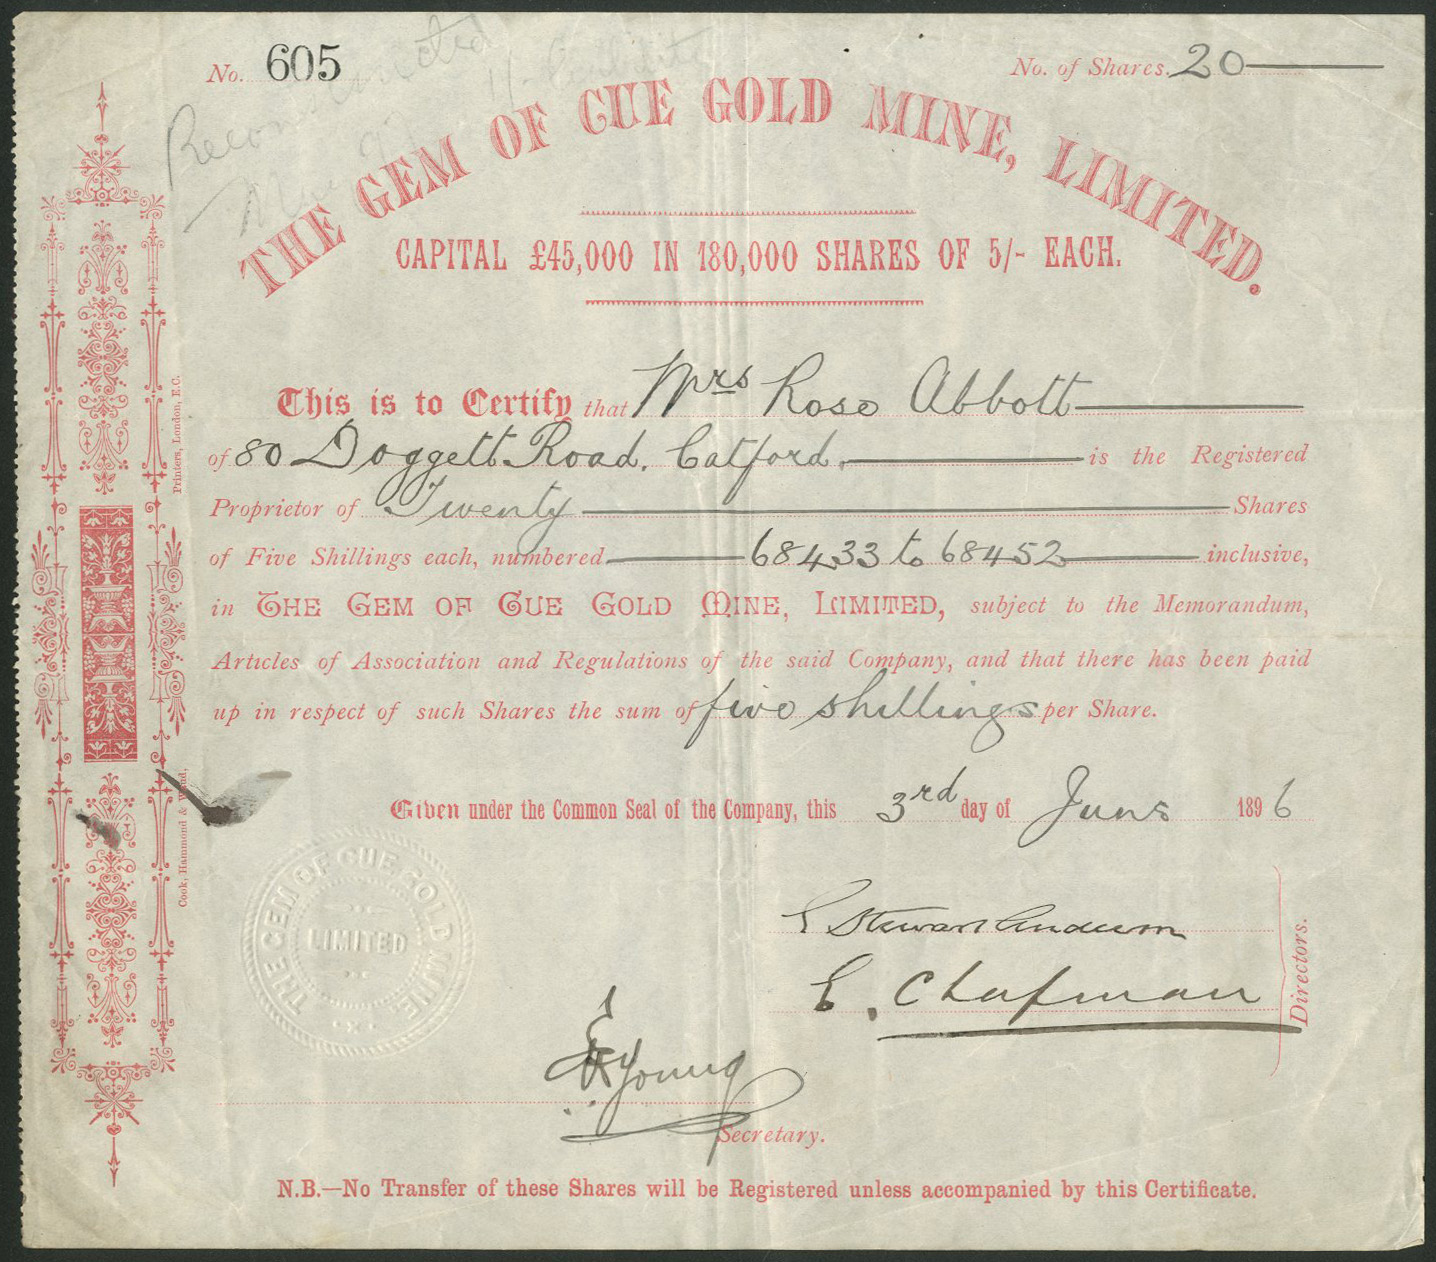 No. 605
No. of Shares. 20
THE GEM OF CUE GOLD MINE, LIMITED.
CAPITAL £45,000 IN 180,000 SHARES OF 5/- EACH.
This is to Certify that Mrs Rose Abbott
of 80 Doggett Road, Catford, is the Registered
Proprietor of Twenty Shares
of Five Shillings each, numbered 68433 to 68452 inclusive,
in THE GEM OF CUE GOLD MINE, LIMITED, subject to the Memorandum,
Articles of Association and Regulations of the said Company, and that there has been paid
up in respect of such Shares the sum of five shillings per Share.
Given under the Common Seal of the Company, this 3rd day of June 1896
Stewart Anderson
E. Chapman
Directors.
THE GEM OF CUE GOLD MINE
LIMITED
Young
Secretary.
N.B.—No Transfer of these Shares will be Registered unless accompanied by this Certificate.
Cook, Hammond & Wand, Printers, London, E.C.